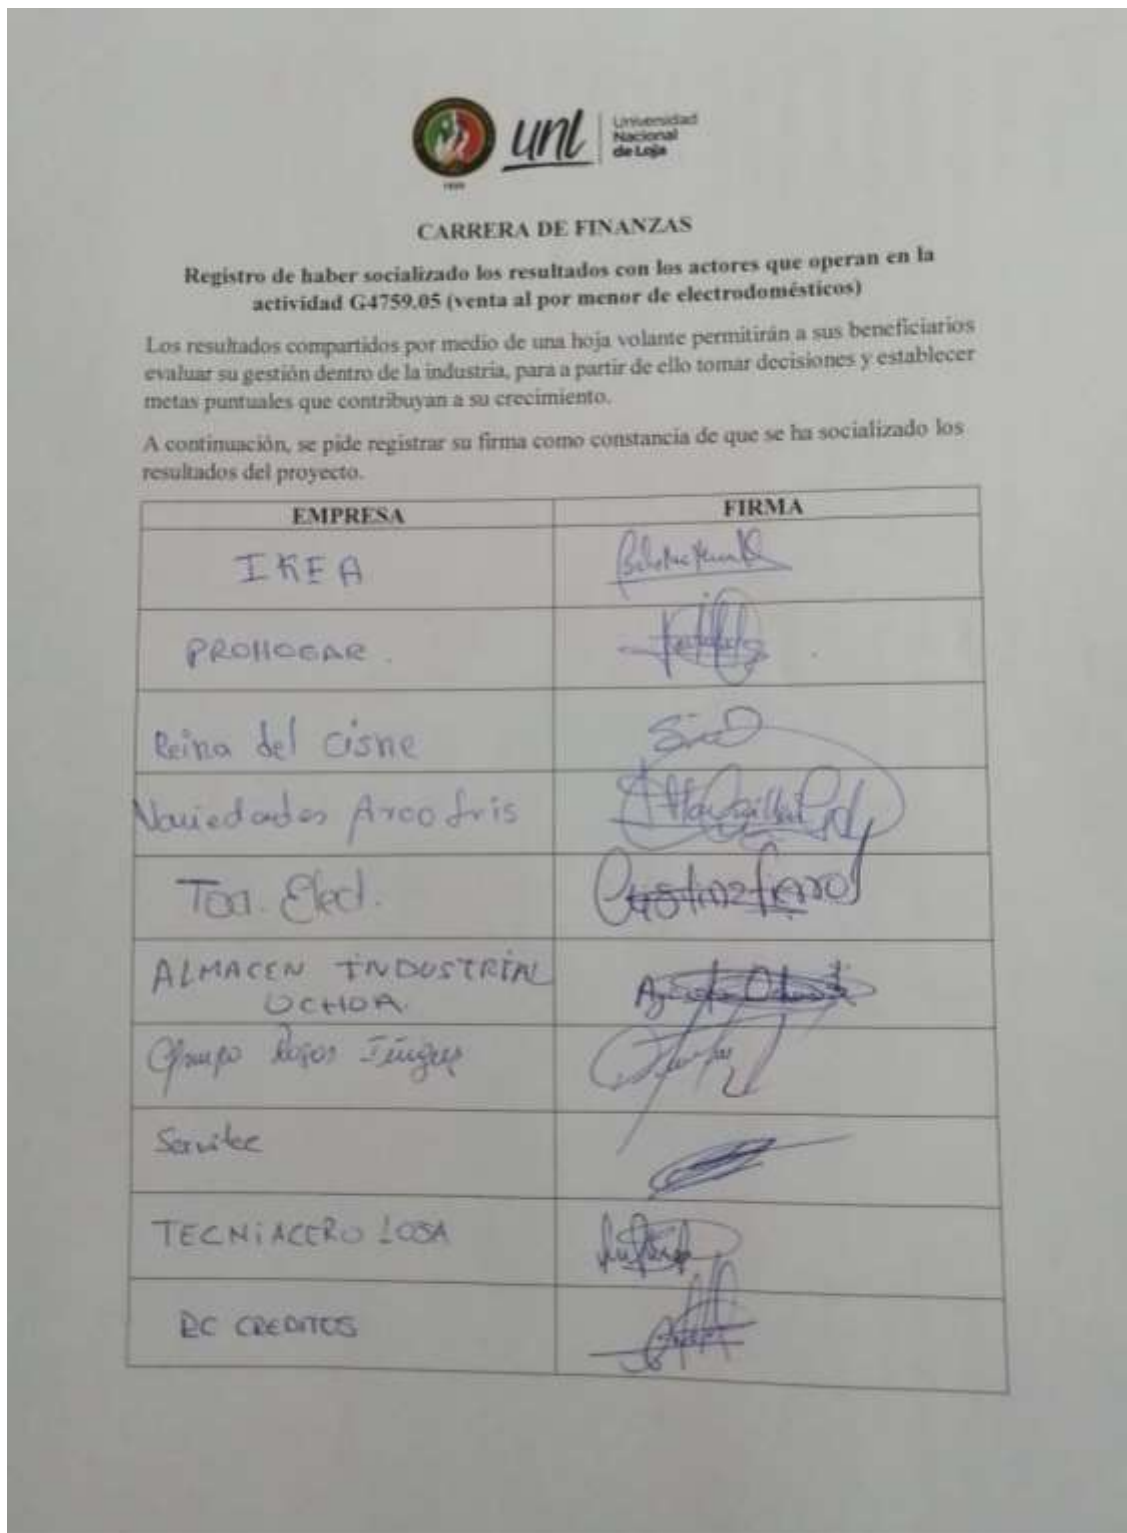 unl
Universidad
Nacional
de Loja
1859
CARRERA DE FINANZAS
Registro de haber socializado los resultados con los actores que operan en la
actividad G4759.05 (venta al por menor de electrodomésticos)
Los resultados compartidos por medio de una hoja volante permitirán a sus beneficiarios
evaluar su gestión dentro de la industria, para a partir de ello tomar decisiones y establecer
metas puntuales que contribuyan a su crecimiento.
A continuación, se pide registrar su firma como constancia de que se ha socializado los
resultados del proyecto.
EMPRESA FIRMA
IKEA
PROHOGAR.
Reina del cisne
Variedades Arco Iris
Toa. Elect.
ALMACEN INDUSTRIAL
OCHOA.
Grupo Rojas
Servitec
TECNIACERO LOSA
RC CREDITOS